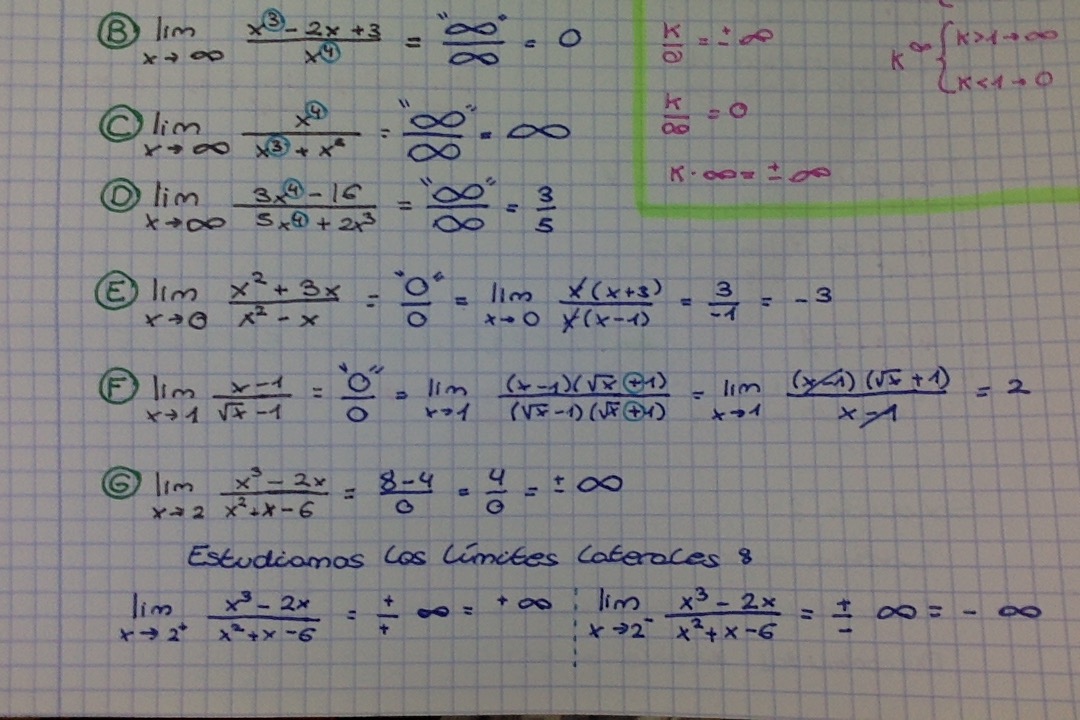 B lim x→∞ (x³ - 2x + 3)/x⁴ = "∞"/∞ = 0
C lim x→∞ x⁴/(x³ + x²) = "∞"/∞ = ∞
D lim x→∞ (3x⁴ - 16)/(5x⁴ + 2x³) = "∞"/∞ = 3/5
E lim x→0 (x² + 3x)/(x² - x) = "0"/0 = lim x→0 x(x+3)/x(x-1) = 3/-1 = -3
F lim x→1 (x-1)/(√x - 1) = "0"/0 = lim x→1 (x-1)(√x+1)/(√x-1)(√x+1) = lim x→1 (x-1)(√x+1)/(x-1) = 2
G lim x→2 (x³ - 2x)/(x²+x-6) = (8-4)/0 = 4/0 = ± ∞
Estudiamos los límites laterales :
lim x→2⁺ (x³ - 2x)/(x²+x-6) = +/+ ∞ = +∞ lim x→2⁻ (x³ - 2x)/(x²+x-6) = +/- ∞ = - ∞
K/0 = ±∞
K/∞ = 0
K·∞ = ±∞
K^∞ { K>1→∞
K<1→0